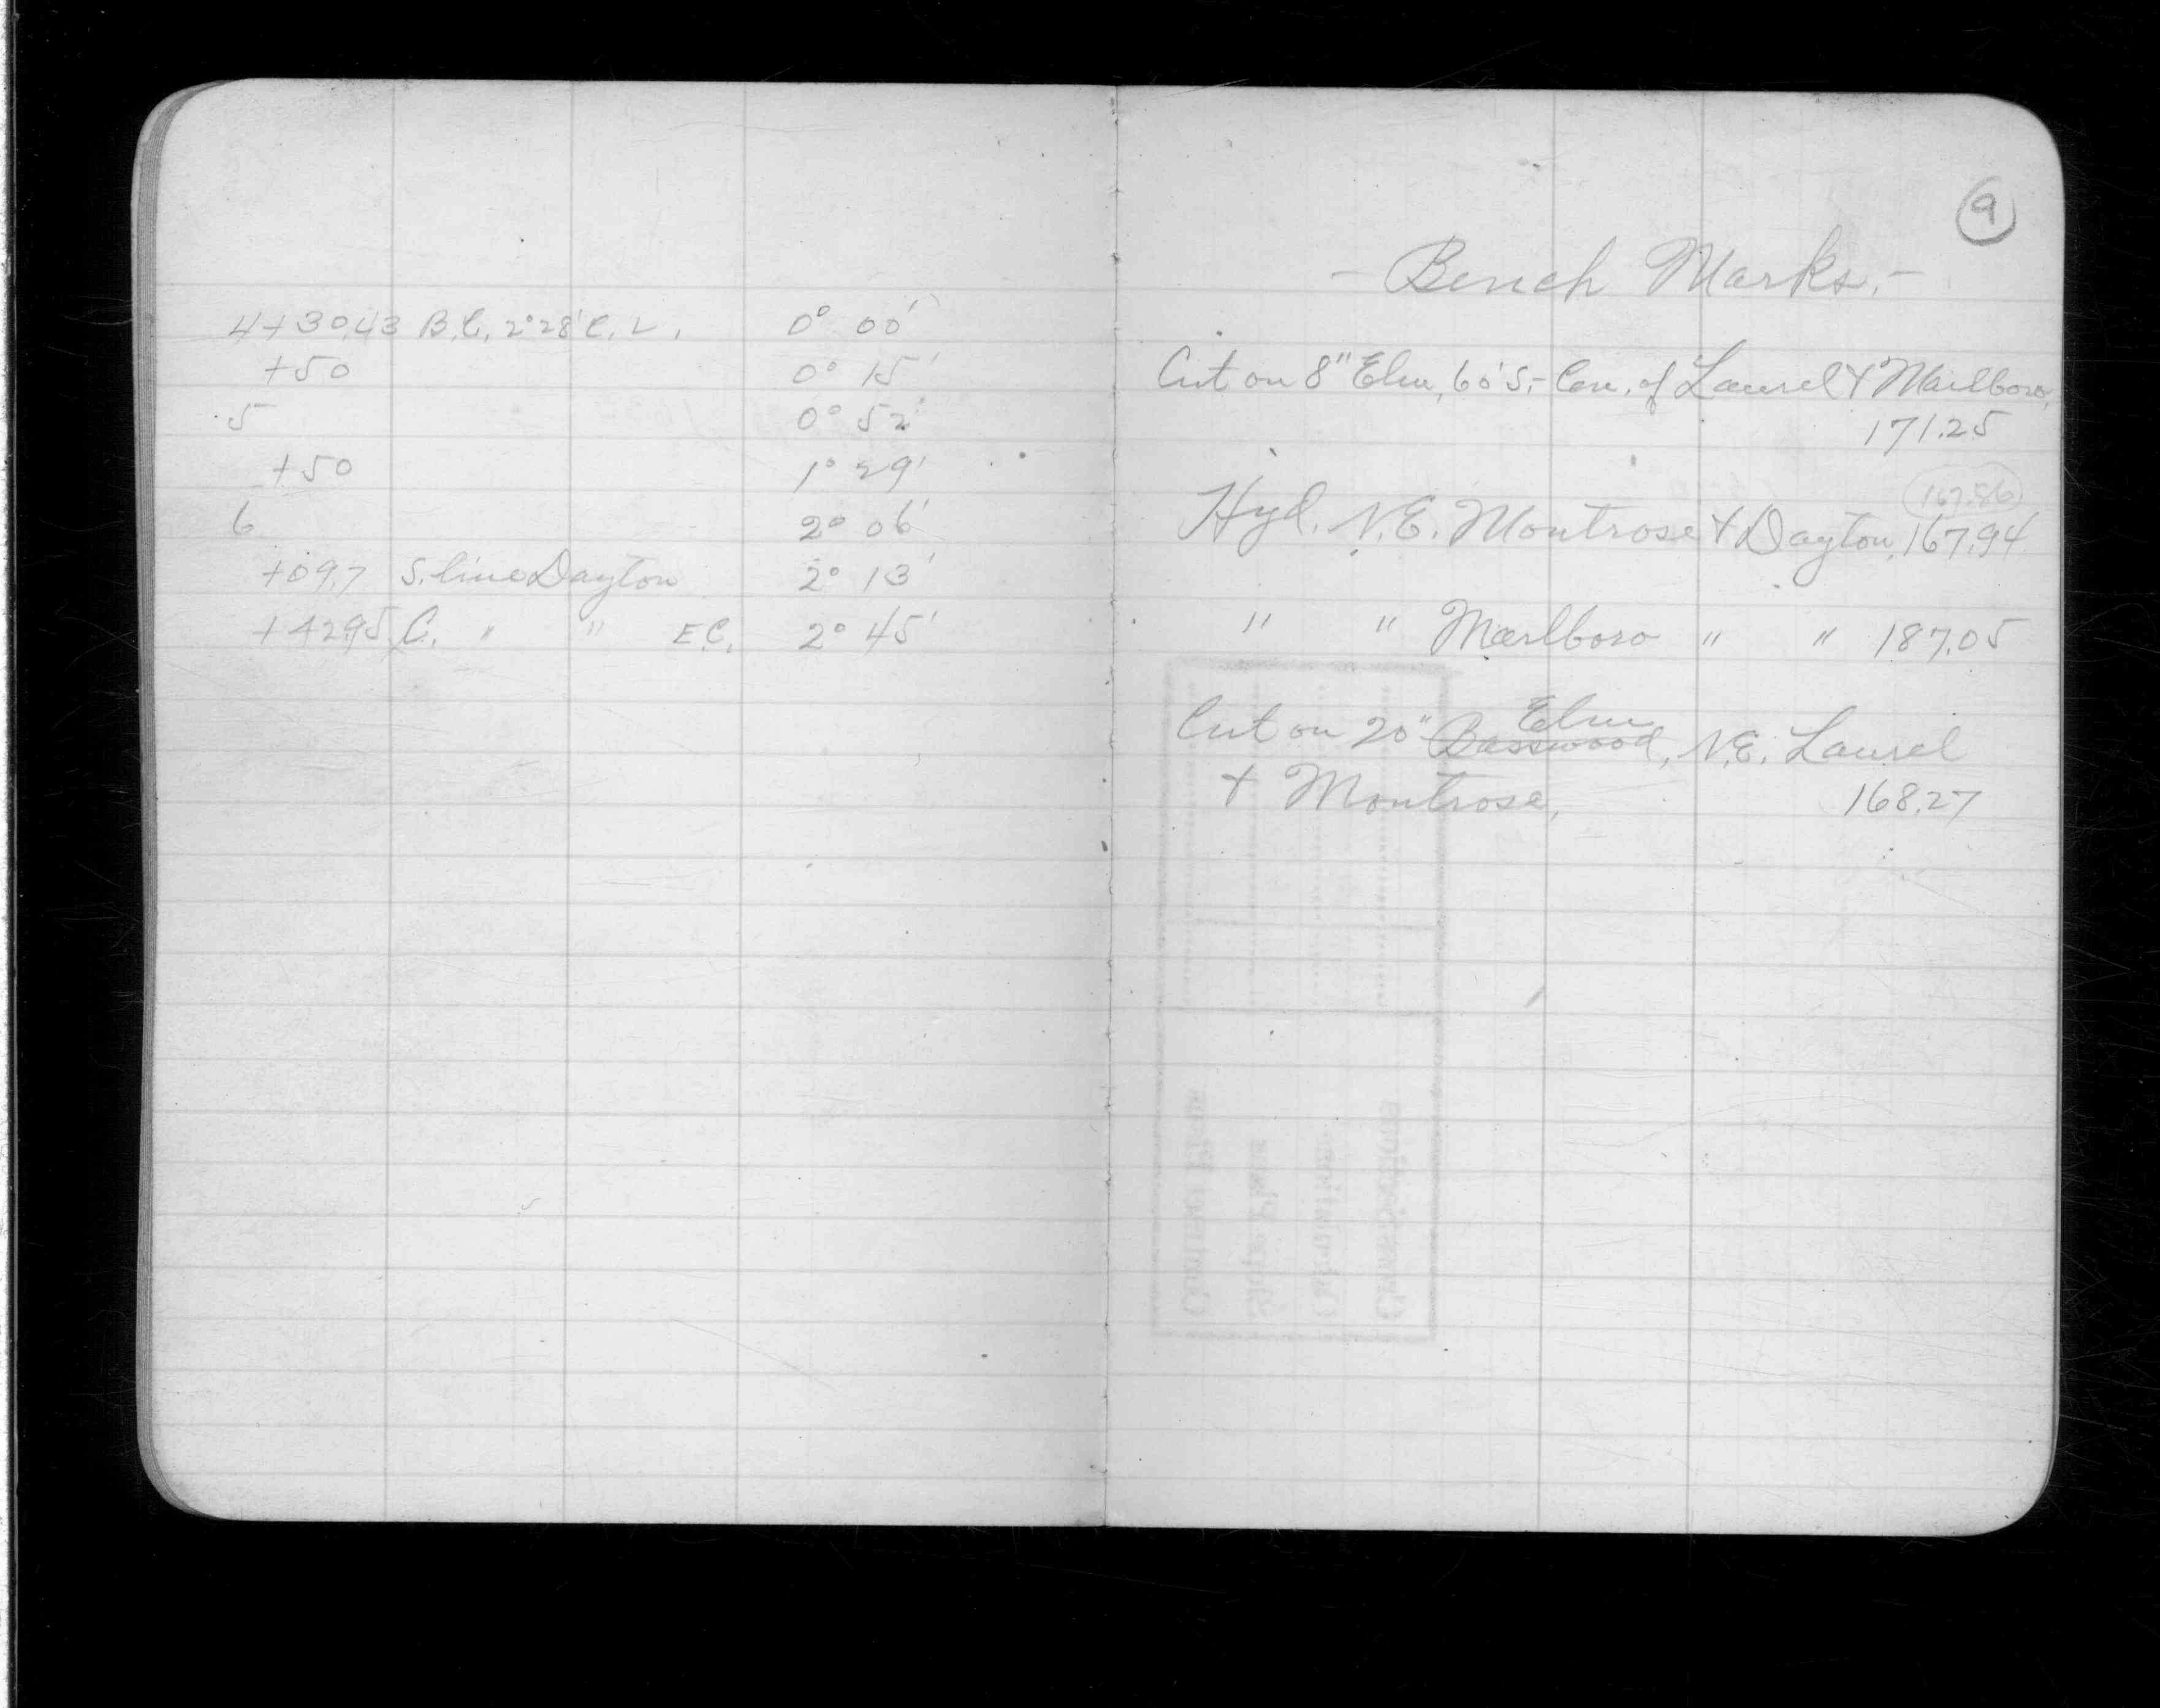 4+30.43 B.C. 2°28' C. L. 0° 00'
+50 0° 15'
5 0° 52'
+50 1° 29'
6 2° 06'
+09.7 S. line Dayton 2° 13'
+42.95 C. " " E.C. 2° 45'
9
- Bench Marks. -
Cut on 8" Elm, 60' S. - Cen. of Laurel & Marlboro,
171.25
167.86
Hyd. N.E. Montrose & Dayton, 167.94
" " Marlboro " " 187.05
Elm
Cut on 20" Basswood, N.E. Laurel
& Montrose, 168.27